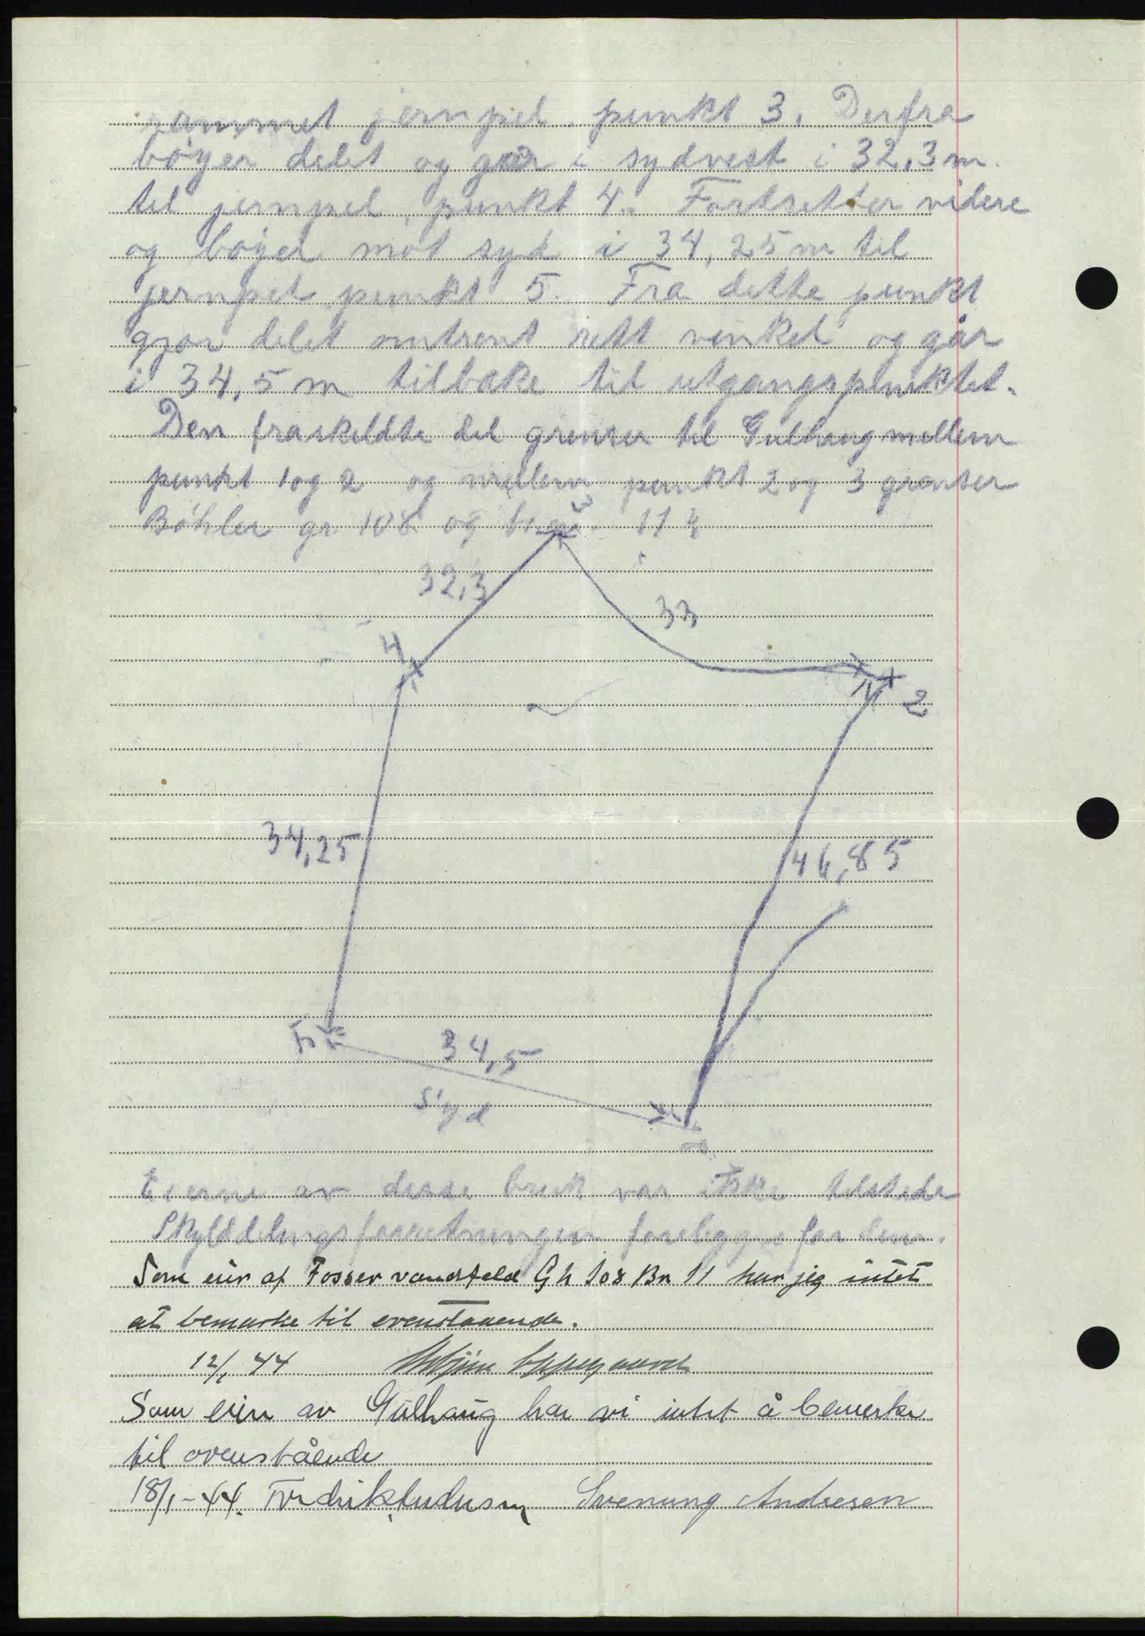 rammet jernpel, punkt 3. Derfra
bøyer delet og går i sydvest i 32,3 m.
til jernpel, punkt 4. Fortsetter videre
og bøyer mot syd i 34,25 m til
jernpel punkt 5. Fra dette punkt
gjør delet omtrent rett vinkel og går
i 34,5 m tilbake til utgangspunktet.
Den fraskildte del grenser til Gulhaug mellem
punkt 1 og 2 og mellem punkt 2 og 3 grenser
Bøhler gr. 108 og br. 11
3
32,3
33
4
2
34,25
46,85
5
34,5
Syd
Eierne av disse bruk var ikke tilstede
Skylddelingsforretningen forelegges for dem.
Som eier af Fosser vandfeld G N 108 Bn 11 har jeg intet
at bemærke til ovenstaaende.
12/1 44
Som eier av Gulhaug har vi intet å bemerke
til ovenstående
18/1-44. Fredrik Svenung Andresen